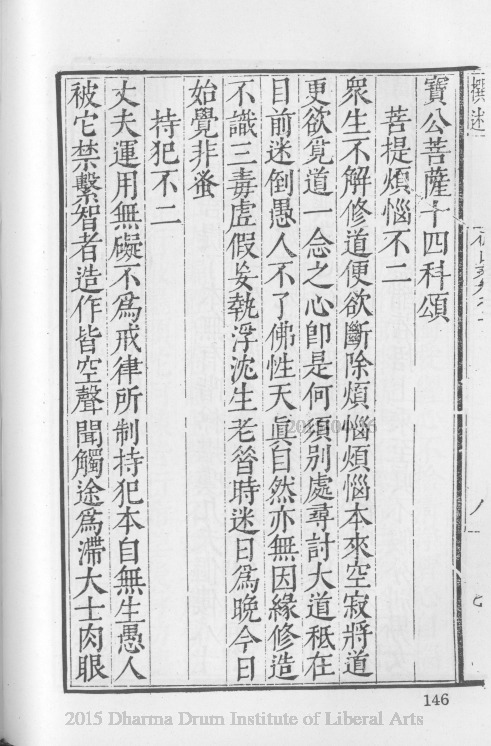 撰述
寶公菩薩十四科頌
菩提煩惱不二
衆生不解修道便欲斷除煩惱煩惱本來空寂將道
更欲覓道一念之心卽是何須別處尋討大道秖在
目前迷倒愚人不了佛性天眞自然亦無因緣修造
不識三毒虛假妄執浮沈生老昝時迷日爲晚今日
始覺非蚤
持犯不二
丈夫運用無礙不爲戒律所制持犯本自無生愚人
被它禁繫智者造作皆空聲聞觸途爲滯大士肉眼
146
2015 Dharma Drum Institute of Liberal Arts